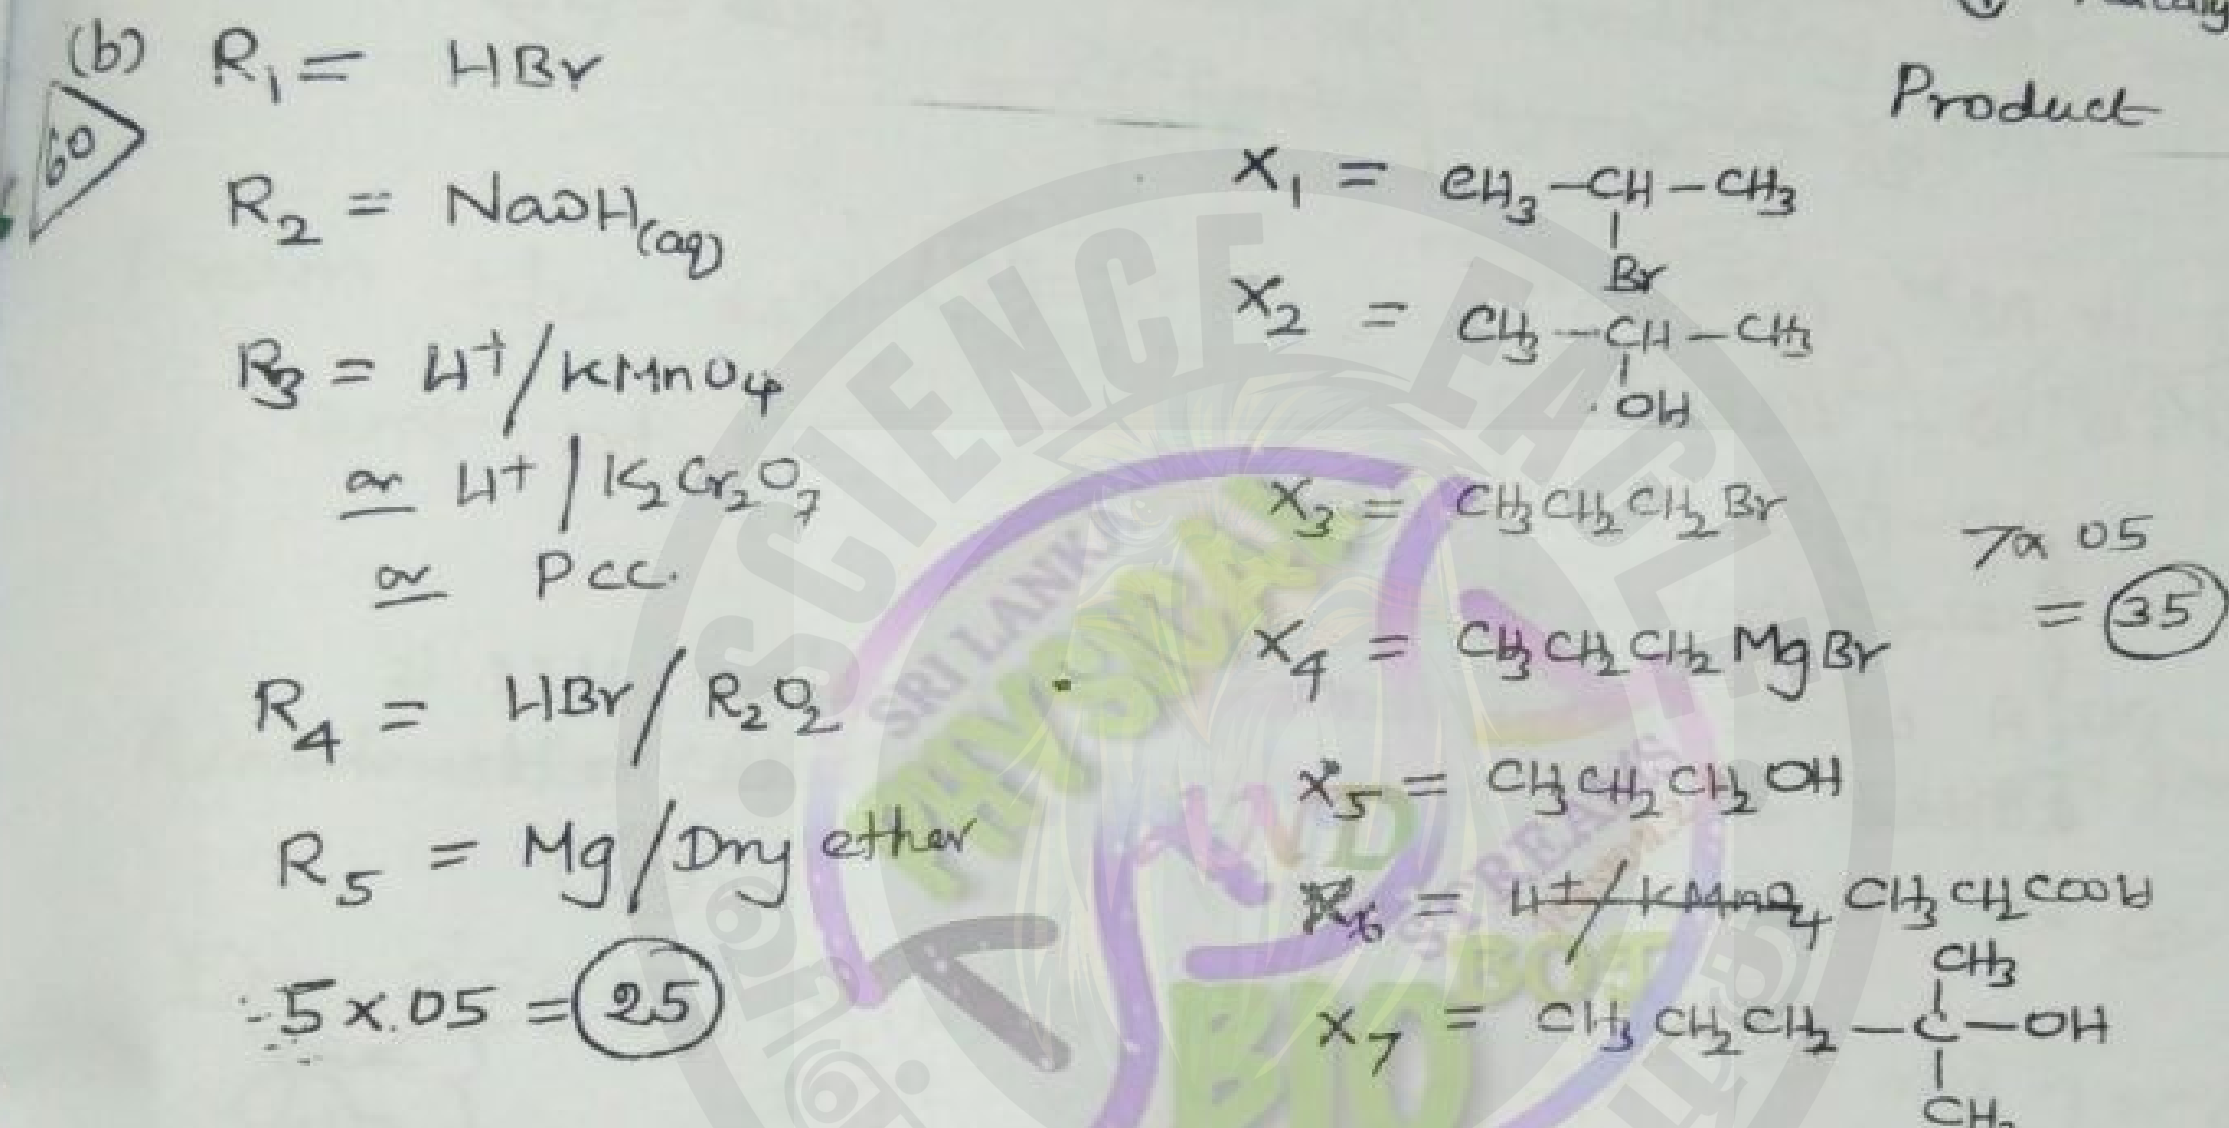 (b) R₁ = HBr
60
R₂ = NaOH(aq)
R₃ = H⁺/KMnO₄
or H⁺/K₂Cr₂O₇
or PCC.
R₄ = HBr/R₂O₂
R₅ = Mg/Dry ether
5 x 05 = 25
Product
X₁ = CH₃-CH-CH₃
Br
X₂ = CH₃-CH-CH₃
OH
X₃ = CH₃CH₂CH₂Br
7x 05
= 35
X₄ = CH₃CH₂CH₂MgBr
X₅ = CH₃CH₂CH₂OH
X₆ = H⁺/KMnO₄ CH₃CH₂COOH
CH₃
X₇ = CH₃CH₂CH₂-C-OH
CH₃
SCIENCE EAGLE
SRI LANKA
AND
BIO
BOT